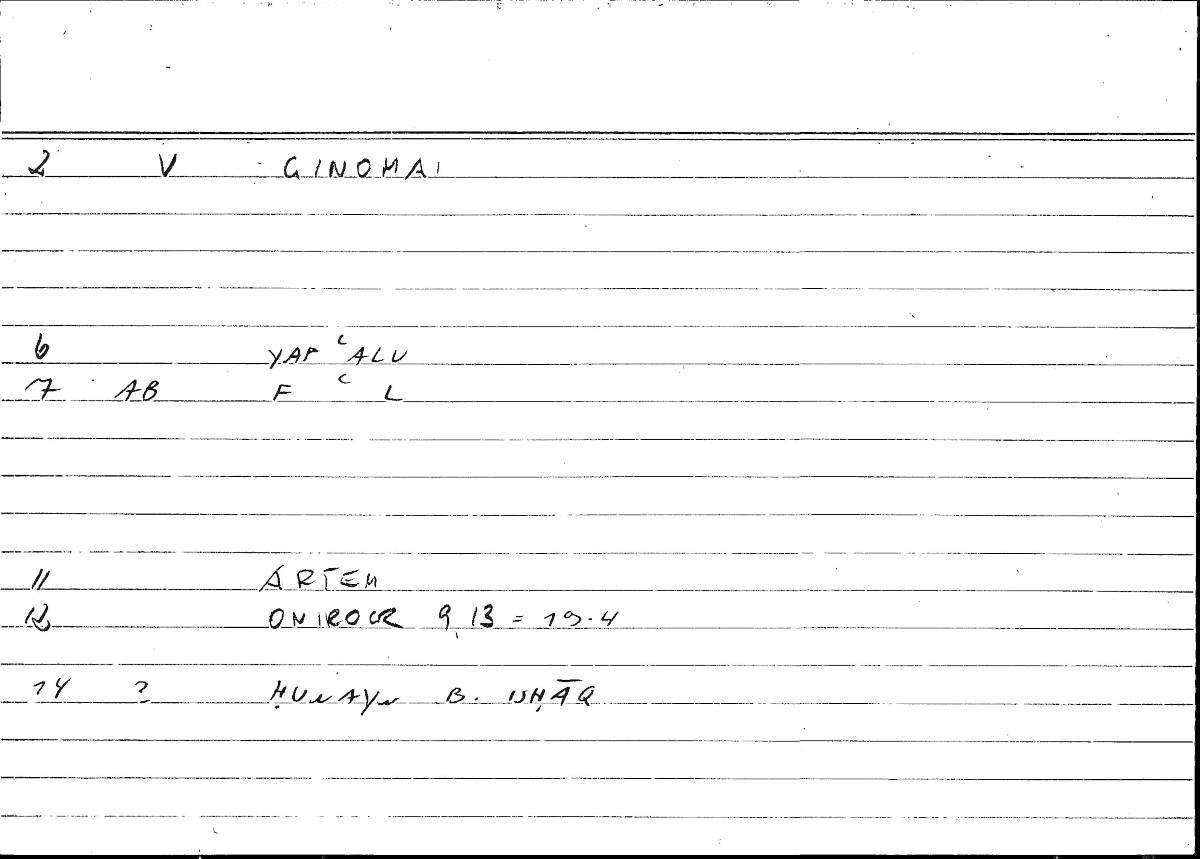 2 V GINOMAI
6 YAF ʿALU
7 AB F ʿ L
11 ARTEM
12 ONIROCR 9,13 = 19.4
14 ? ḤUNAYN B. ISḤĀQ